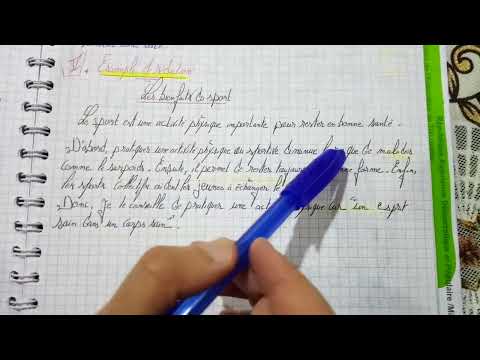 V + Exemple de rédaction
Les bienfaits du sport
Le sport est une activité physique importante pour rester en bonne santé.
D'abord, pratiquer une activité physique ou sportive diminue le risque de maladies
comme le surpoids. Ensuite, il permet de rester toujours forme. Enfin,
les sports collectifs jeunes à échanger
Donc, je te conseille de pratiquer une physique car "un esprit
sain dans un corps sain".